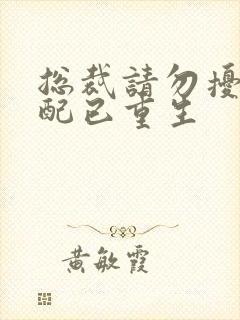 総裁請勿擾
配已重生
黄敏霞